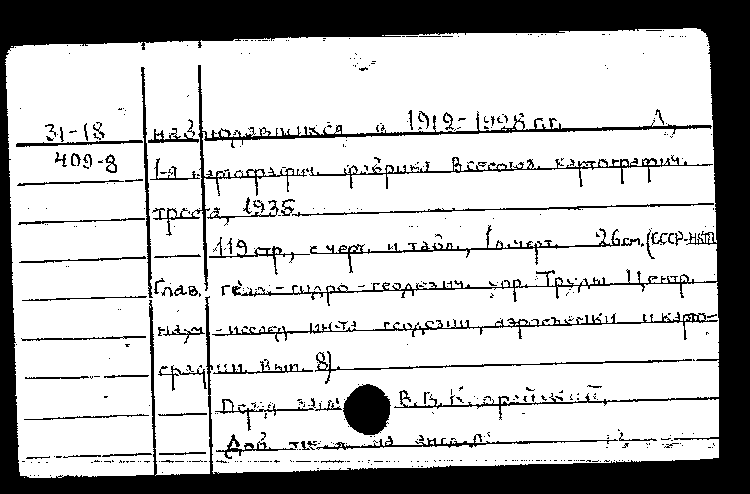 31-18 наблюдавшихся в 1912-1928 гг. Л.,
409-8 1-я картографич. фабрика Всесоюз. картографич.
треста, 1935.
119 стр., с черт. и табл., 1 л. черт. 26 см. (СССР-НКТП
Глав. геол.-гидро-геодезич. упр. Труды Центр.
науч.-исслед. ин-та геодезии, аэросъемки и карто-
графии. Вып. 8).
Перед В.В.
Доб. на англ.